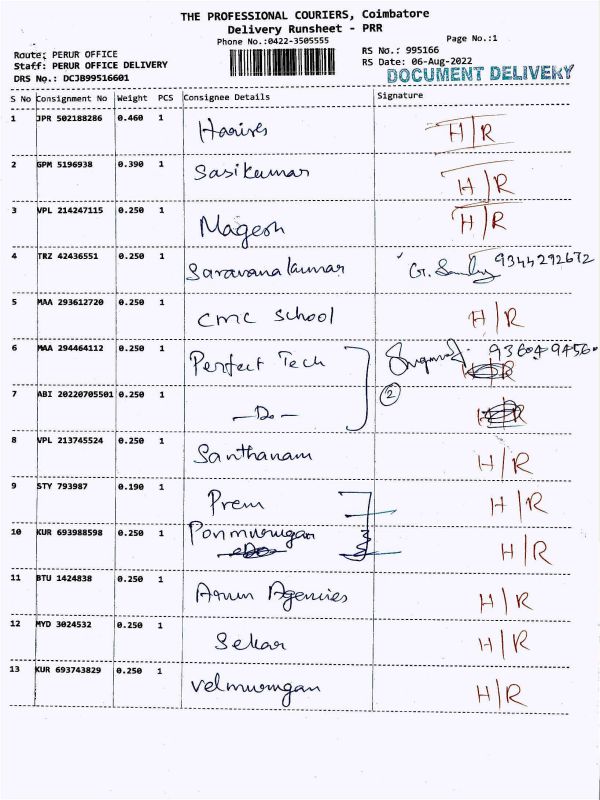 THE PROFESSIONAL COURIERS, Coimbatore
Delivery Runsheet - PRR
Phone No.:0422-3505555
Page No.:1
Route: PERUR OFFICE
RS No.: 995166
Staff: PERUR OFFICE DELIVERY
RS Date: 06-Aug-2022
DRS No.: DCJB99516601
DOCUMENT DELIVERY
S No Consignment No Weight PCS Consignee Details Signature
1 JPR 502188286 0.460 1 Harires H/R
2 GPM 5196938 0.390 1 Sasikumar H/R
3 VPL 214247115 0.250 1 Magesh H/R
4 TRZ 42436551 0.250 1 Saravanakumar G. 9344292672
5 MAA 293612720 0.250 1 CMC School H/R
6 MAA 294464112 0.250 1 Perfect Tech
7 ABI 20220705501 0.250 1 -Do- 2
8 VPL 213745524 0.250 1 Santhanam H/R
9 STY 793987 0.190 1 Prem H/R
10 KUR 693988598 0.250 1 Ponmurugan H/R
11 BTU 1424838 0.250 1 Arun Agencies H/R
12 MYD 3024532 0.250 1 Sekar H/R
13 KUR 693743829 0.250 1 Velmurugan H/R